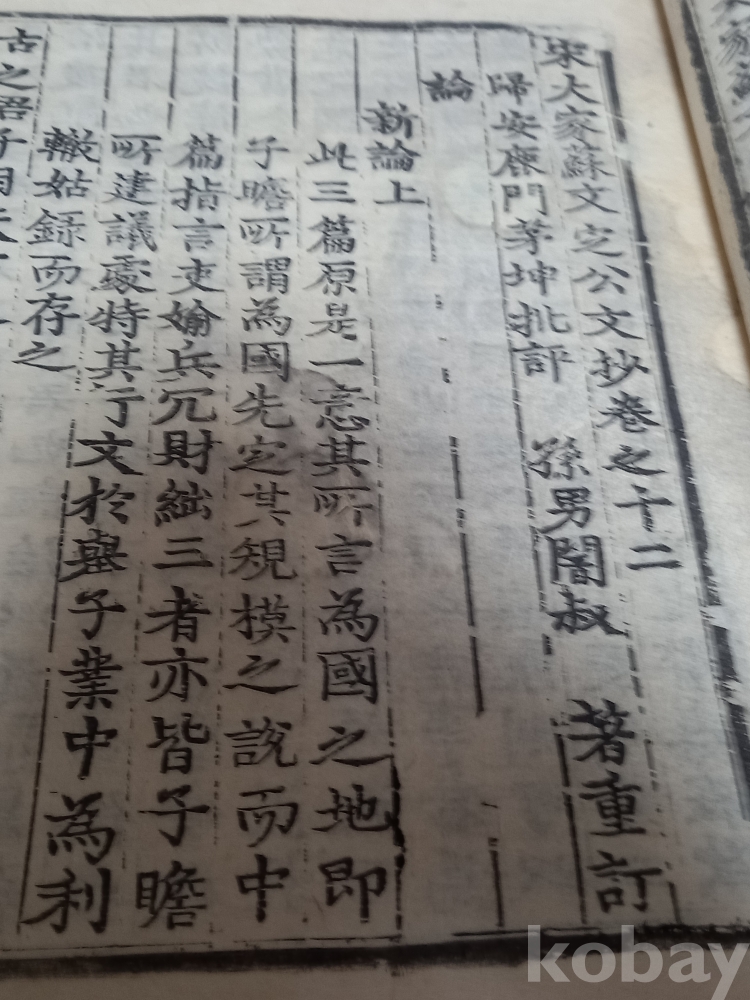 宋大家蘇文定公文抄卷之十二
歸安鹿門茅坤批評 孫男闇叔 著重訂
論
新論上
此三篇原是一意其所言為國之地即
子瞻所謂為國先定其規模之說而中
篇指言吏媮兵冗財絀三者亦皆子瞻
所建議處特其行文於舉子業中為利
轍姑錄而存之
古之君子因天
kobay